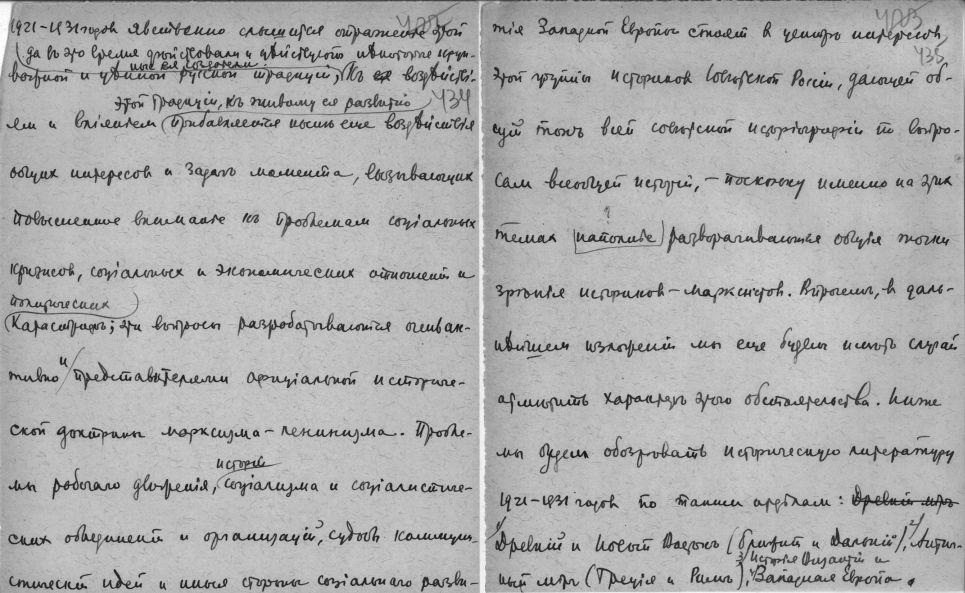 1921-1931 годов явственно слышится отражение этой
да въ это время действовали и действуют некоторые круп-
ные ея создатели.
и ценной русской традиции; Къ воздейст-
этой Традиции, къ живому ея развитию
434
ям и влияніем прибавляется посылъ еще воздействія
общих интересов и задачъ момента, вызывающих
повышенное вниманіе къ проблемам соціальных
кризисов, соціальных и экономических отношений и
политических
Катастрофъ; эти вопросы разработываются очень ак-
тивно и представителями официальной историче-
ской доктрины марксизма-ленинизма. Пробле-
исторіи
мы рабочаго движения, соціализма и соціалистиче-
ских объединений и организаций, судьбъ коммуни-
стической идей и иныя стороны соціальнаго разви-
435
тія Западной Европы стоят в центре интересов
этой группы историков Советской России, дающей об-
щий тонъ всей советской исторіографіи по вопро-
сам всеобщей исторіи, - поскольку именно на этих
?
темах наиболее разворачиваются общія точки
зрѣнія историков-марксистов. Впрочем, в даль-
нейшем изложении мы еще будем иметь случай
отметить характеръ этого обстоятельства. Ниже
мы будем обозревать историческую литературу
1921-1931 годов по таким отделам: Древний міръ
1) Древний и Новый Востокъ (Ближний и Дальний), 2) Антич-
3) Исторія Византии и
ный мір (Греція и Римъ), 4) Западная Европа.